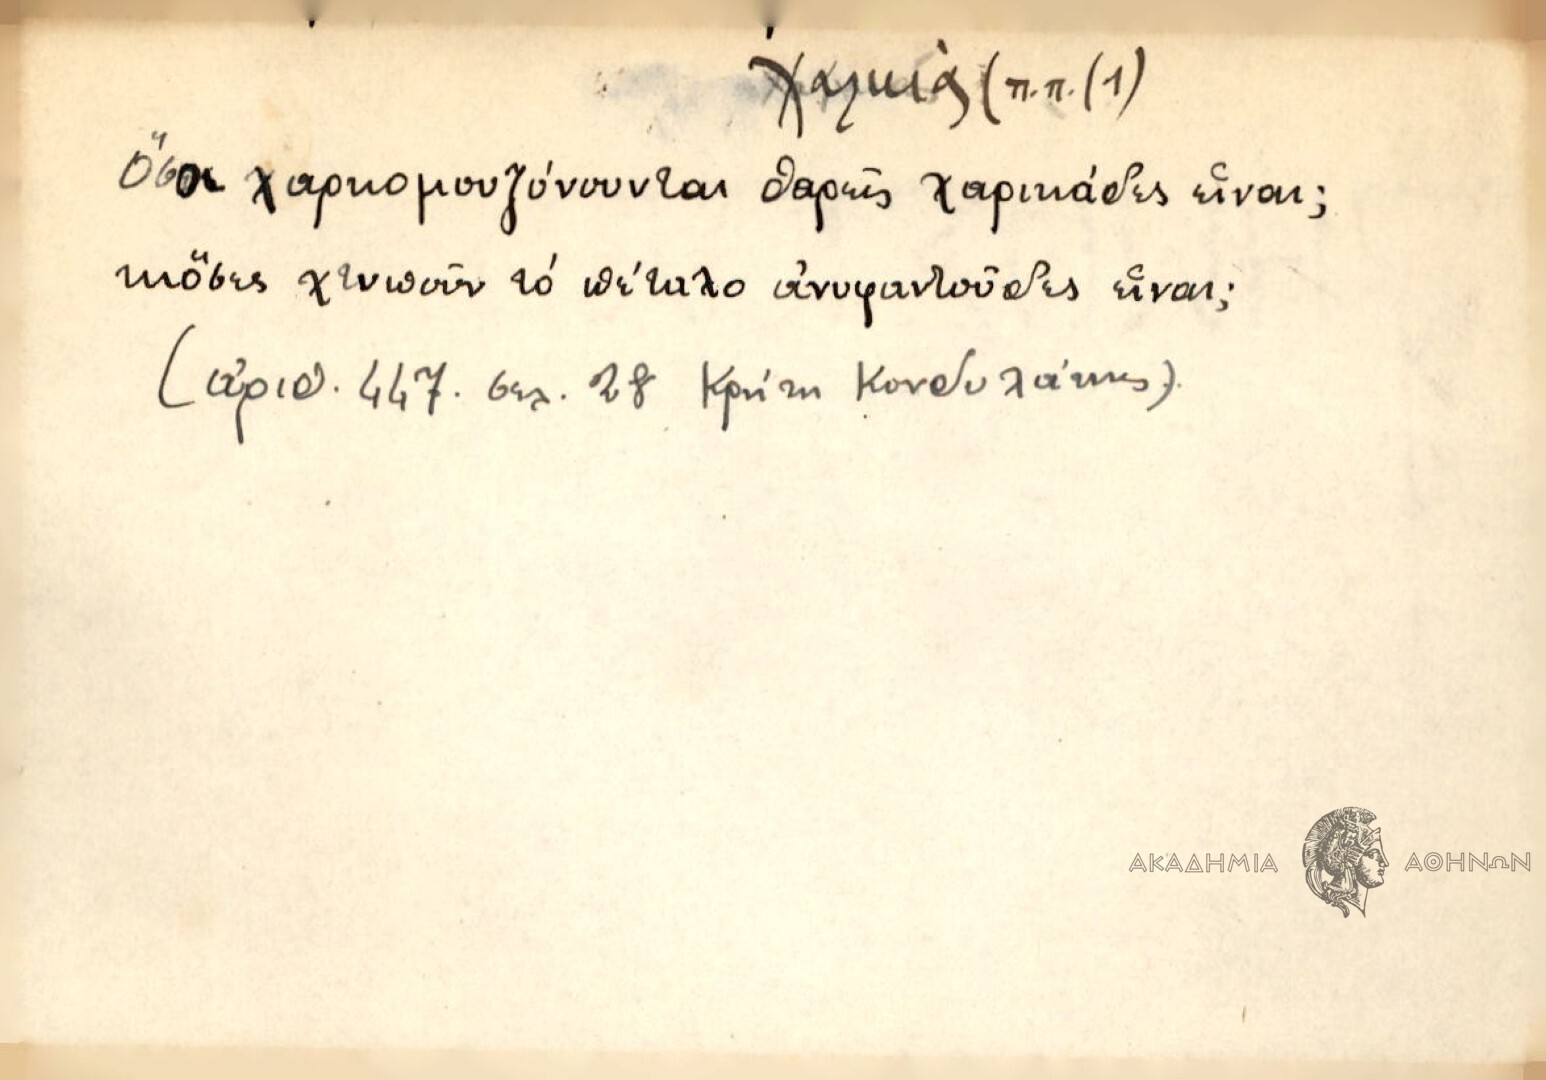 χαλκιάς (π.π. (1)
Ὅσοι χαρκομουζώνουνται θαρεῖς χαρκιάδες εἶναι;
κιὅσες χτυποῦν τό πέταλο ἀνυφαντοῦδες εἶναι;
(ἀριθ. 447. σελ. 28 Κρήτη Κονδυλάκης).
ΑΚΑΔΗΜΙΑ ΑΘΗΝΩΝ